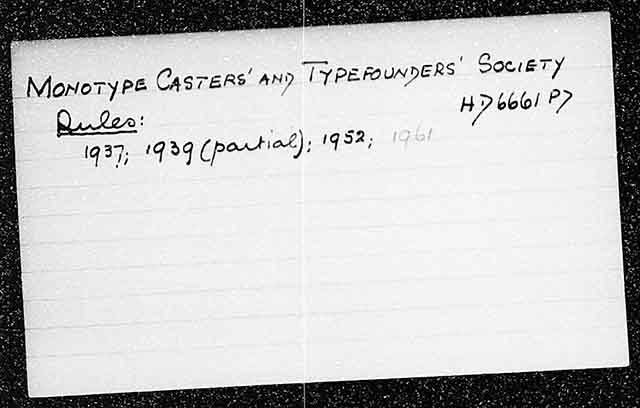 MONOTYPE CASTERS' AND TYPEFOUNDERS' SOCIETY
HD6661 P7
Rules:
1937; 1939 (partial); 1952; 1961